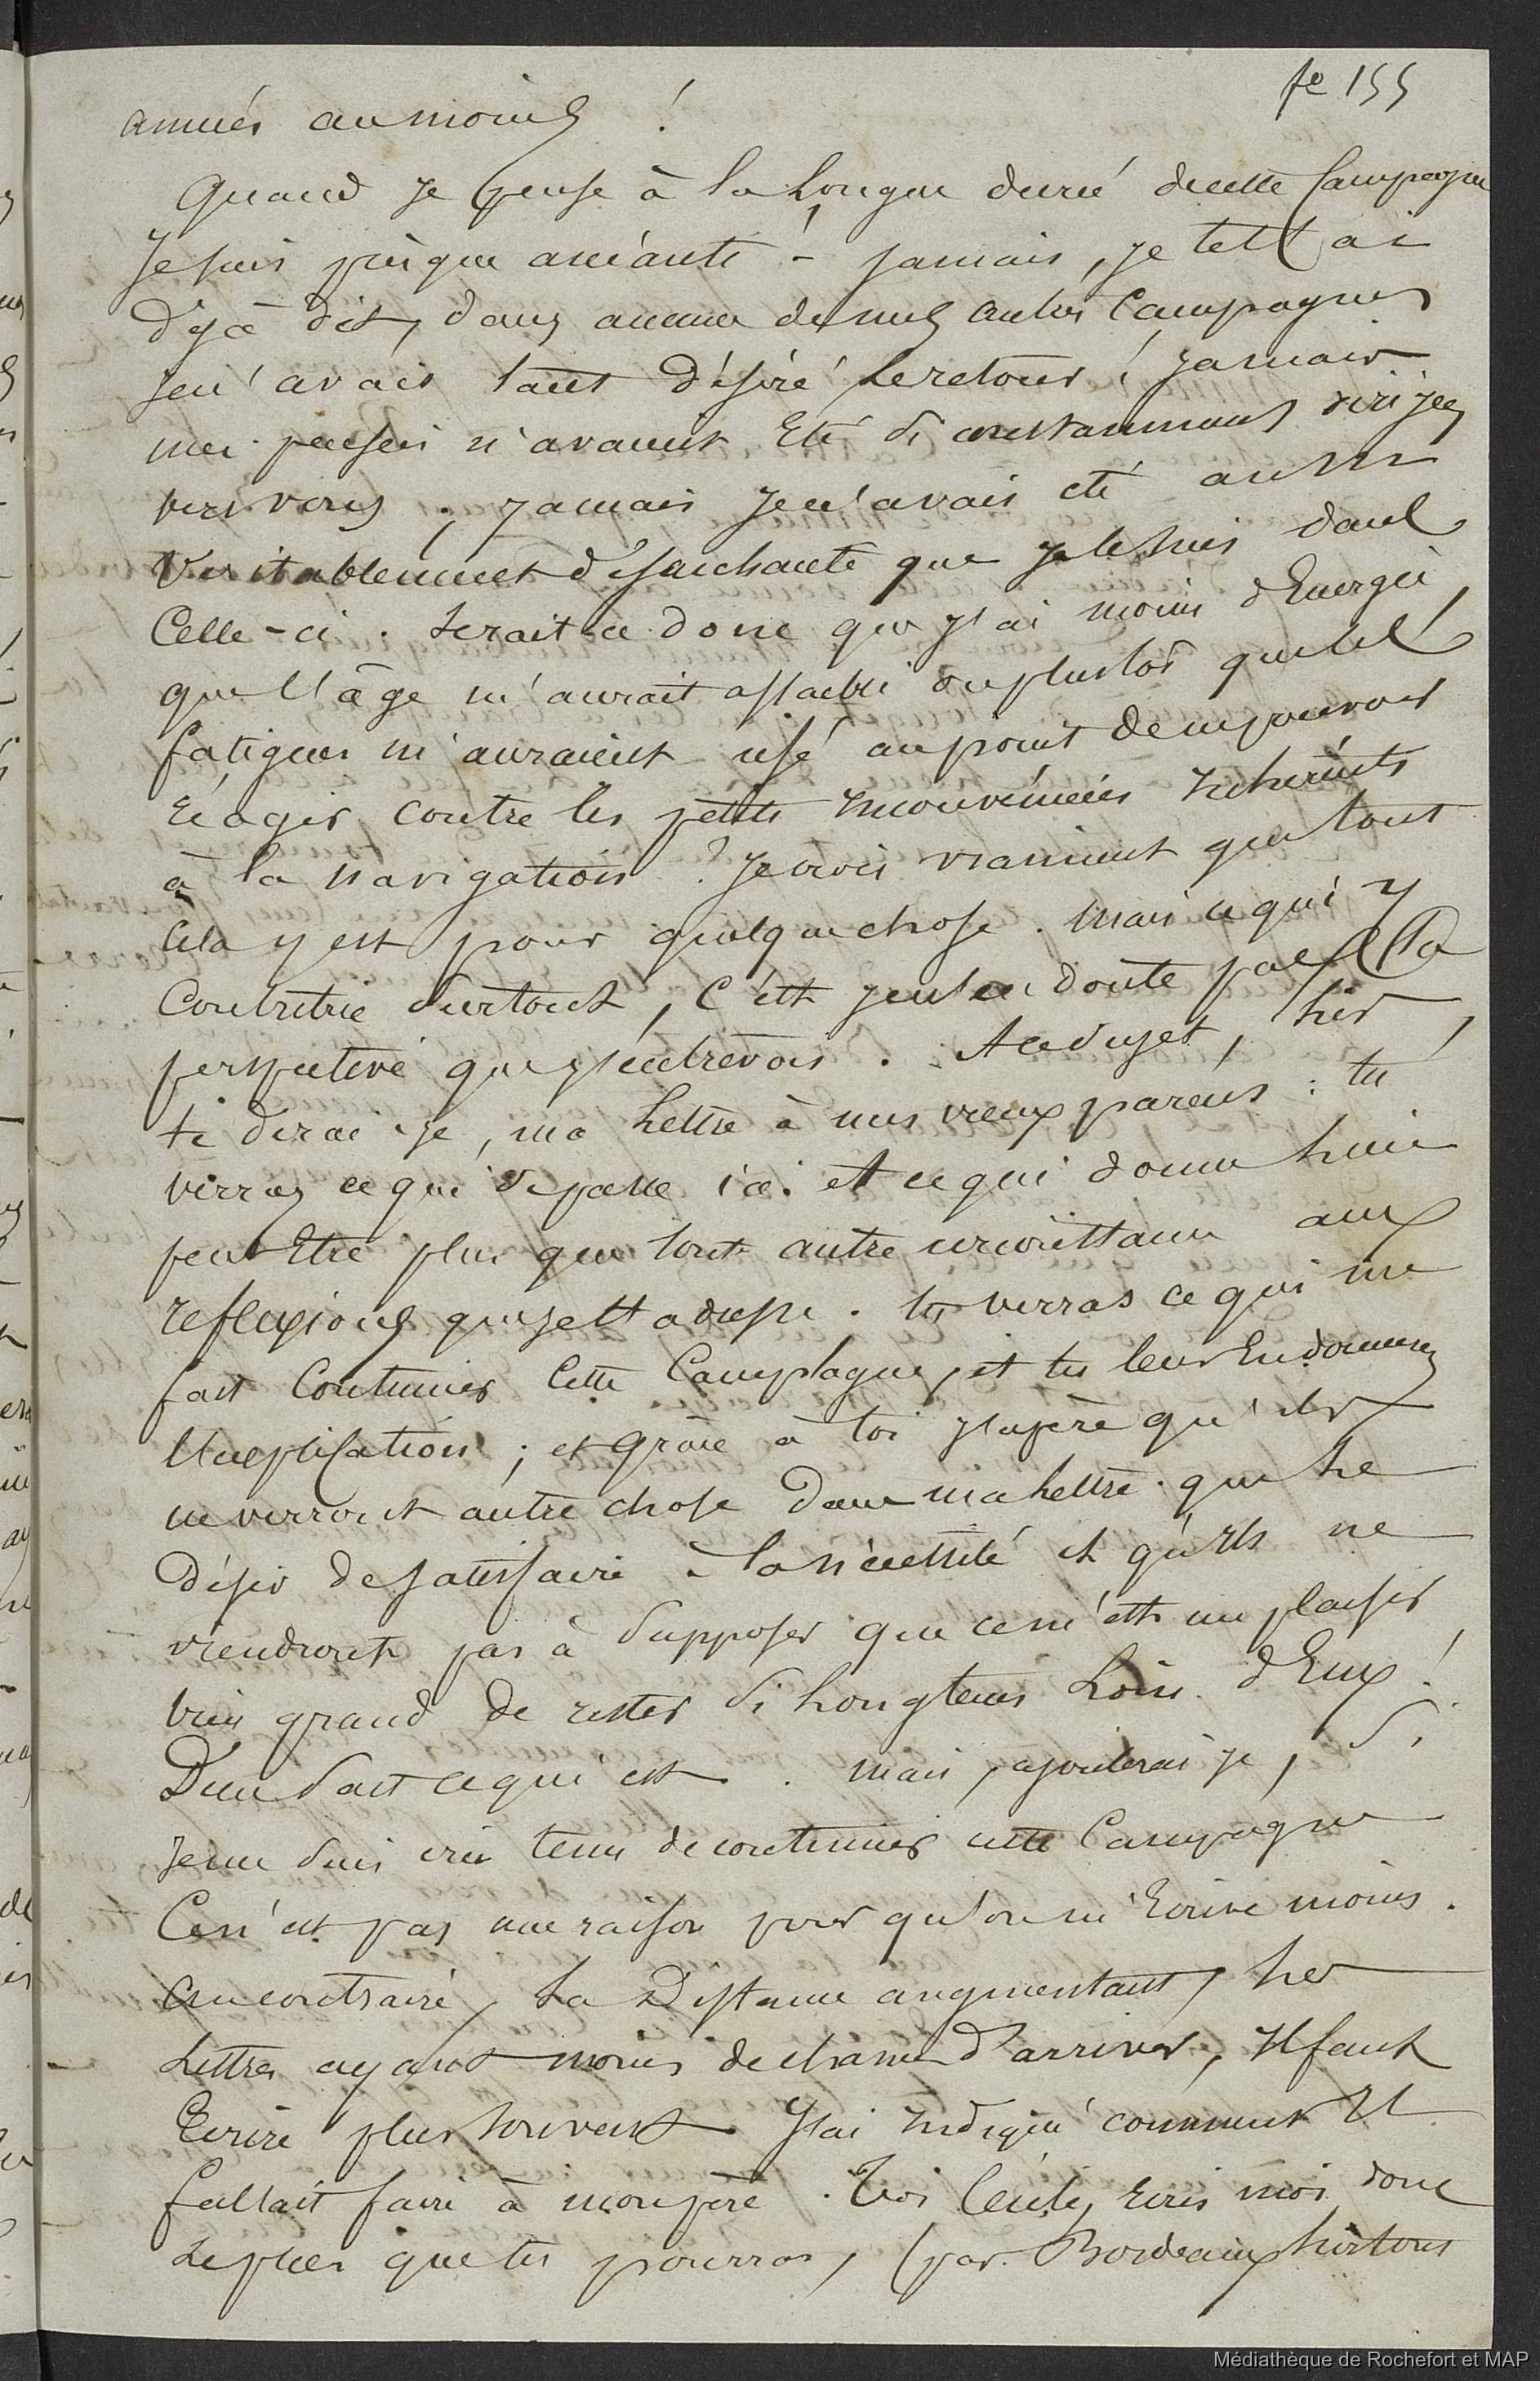 fe 155
années au moins !
Quand je pense à la longue durée de cette Campagne
Je suis presque anéanti - jamais, je te l'ai
déjà dit, dans aucune de mes autres Campagnes
je n'avais tant désiré le retour ! jamais
mes pensées n'avaient Eté si constamment dirijées
vers vous ; jamais je n'avais été aussi
Veritablement désanchanté que je le suis dans
Celle-ci. serait-ce donc que j'ai moins d'Energie,
que l'âge m'aurait affaibli ou plustot que les
fatigues m'auraient usé au point de ne pouvoir
réagir contre les petits inconvéniens inhérents
à la navigation ? Je crois vraiment que tout
Cela y est pour quelque chose. Mais ce qui y
Contribue surtout, C'est je n'en doute pas, la
perspective que j'entrevois. A ce sujet, lis,
te dirai-je, ma lettre à mes vieux parens : tu
verras ce qui se passe ici. et ce qui donne lieu
peut Etre plus que tout autre circonstance aux
reflexions que je t'adresse. tu verras ce qui me
fait Continuer Cette Campagne, et tu leur En donneras
l'explication ; et grâce à toi j'espère qu'ils
ne verront autre chose dans ma lettre que le
désir de satisfaire à la nécessité et qu'ils ne
viendront pas à supposer que ce m'est un plaisir
bien grand de rester si longtems Loin d'Eux !
Dieu sait ce qui est. mais, ajouterai je, si
je me suis cru tenu de continuer cette Campagne
Ce n'est pas une raison pour qu'on m'Ecrive moins.
au contraire, La Distance augmentant, les
Lettres ayant moins de chance d'arriver, Il faut
Ecrire plus souvent. J'ai indiqué comment Il
fallait faire à mon père. Toi écris moi donc
le plus que tu pourras, (par Bordeaux surtout